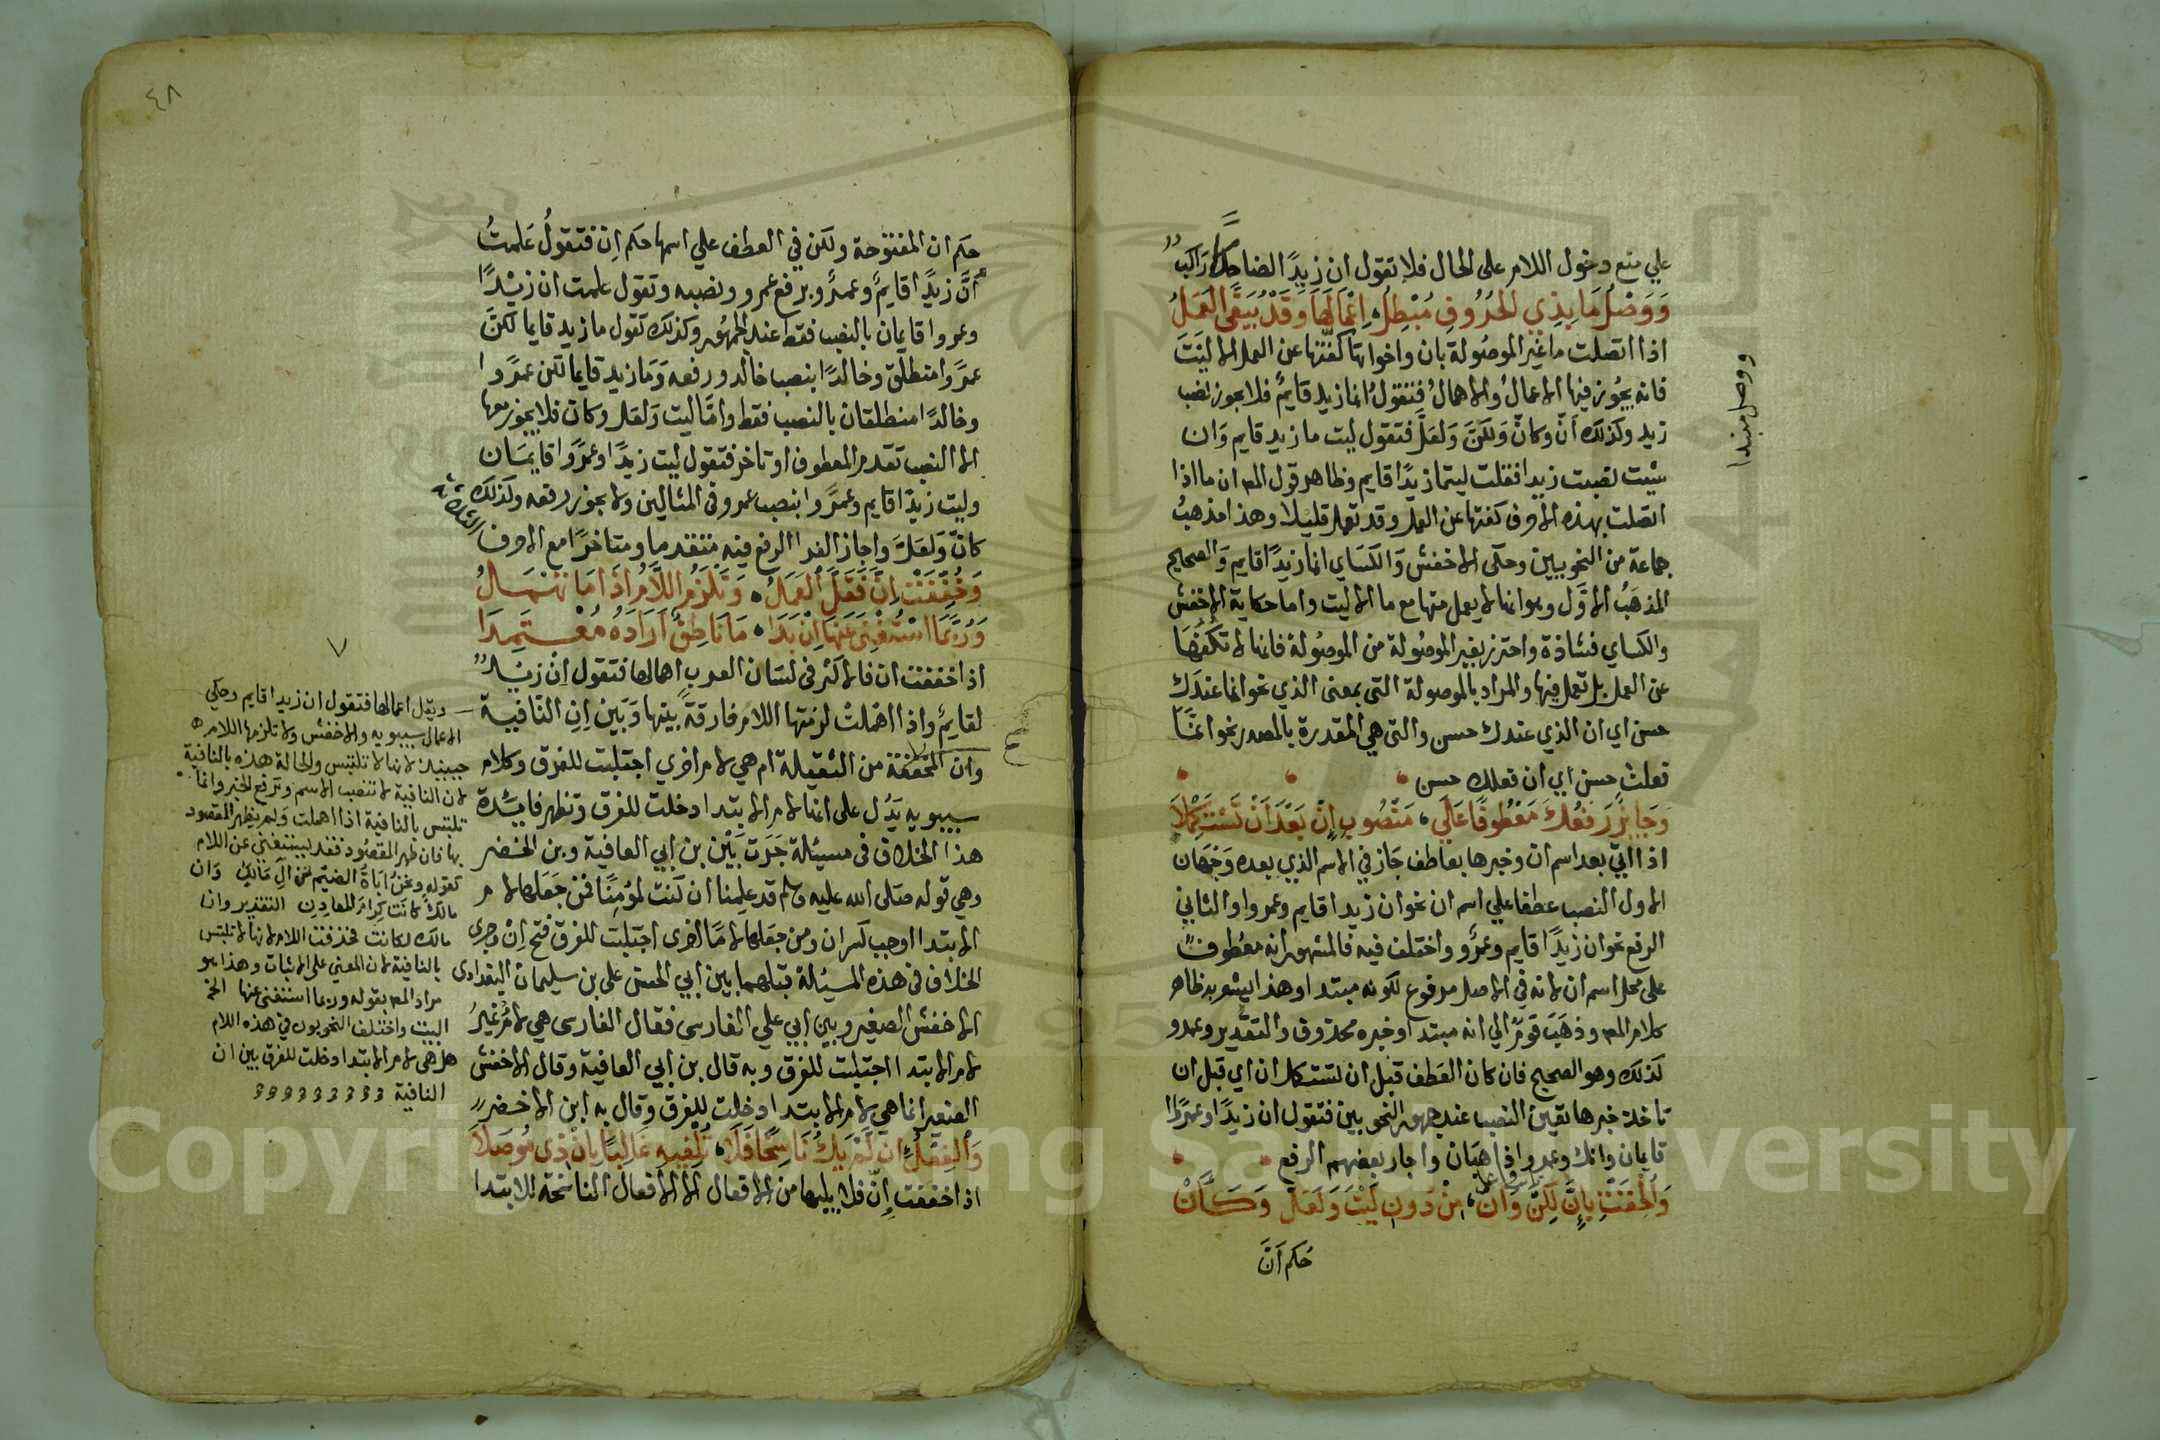 علي منع دخول اللام على الحال فلا تقول ان زيدًا لضاحكًا راكب
وَوَصْلُ مَا بِذِي الحُرُوفِ مُبْطِلُ، اِعْمَالَهَا وَقَدْ يُبَقَّى العَمَلُ
اذا اتصلت ما غير الموصُولة بان واخواتها كفّتها عن العمل الا ليتَ
فانه يجُوز فيها الاعمالُ والاهمالُ فتقولُ انما زيد قايمٌ فلا يجوز نصب
زيد وكذلك أنّ وكانّ ولكنّ ولعلّ فتقول ليت ما زيد قايم وَان
شيْت نصبت زيدا فقلت ليتما زيدًا قايم وظاهر قول المص ان ما اذا
اتصلت بهذه الاحرف كفتها عن العمل وقد تعمل قليلا وهذا مذهبُ
جماعة من النحويين وحكى الاخفش وَالكسَاي انما زيدًا قايم وَالصحيح
المذهَبُ الاوّل وهو انه لا يعمل منها مع ما الا ليت واما حكاية الاخفش
والكساي فشاذة واحترز بغير الموصُولة من الموصُولة فانها لا تكفّهَا
عن العمل بل تعمل فيها والمراد بالموصولة التى بمعنى الذي نحو انما عندك
حسن اي ان الذي عندك حسن والتى هي المقدرة بالمصدر نحو انما
فعلت حسن اي ان فعلك حسن
وَجَايِزٌ رَفْعُكَ مَعْطُوفًا عَلَي، مَنْصُوبِ اِنّ بَعْدَ اَنْ تَسْتَكْمِلَا
اذا اتي بعد اسم ان وخبرها بعاطف جَاز في الاسم الذي بعده وَجْهَان
الاول النصب عطفا علي اسم ان نحو ان زيدا قايم وعمروا والثاني
الرفع نحو ان زيدًا قايم وعمرٌو واختلف فيه فالمشهور انه معْطُوف
على محل اسم ان لانه في الاصل مرفوع لكونه مبتدا وهذا يشعر به ظاهر
كلام المص وذهَبَ قومٌ الي انه مبتدا وخبره محذوف والتقدير وعمرو
كذلك وهو الصحيح فان كان العَطف قبْل ان تستكمل ان اي قبل ان
تاخذ خبرها تعين النصب عند جمهور النحويين فتقول ان زيدًا وعمرًوا
قايمان وانك وعمروا ذاهبَان واجاز بعضهم الرفع
وَاُلْحِقَتْ بِاِنَّ لَكِنَّ وَاَنّ، مِنْ دُونِ لَيْتَ وَلَعَلّ وَكَاَنّ
حُكم اَنّ
ووصل مبتدا
٤٨
حكم ان المفتوحة ولكن في العطف علي اسمها حكم اِن فتقولُ عَلمتُ
أنَّ زيدًا قايمٌ وعمرٌو برفع عمرو ونصبه وتقول علمت ان زيْدًا
وعمروا قايمان بالنصب فقط عند الجمهُور وكذلك تقول ما زيد قايما لكنَّ
عمرًوا منطلقٌ وخالدًا بنصب خالد ورفعه وَمَا زيد قايما لكن عمرًوا
وخالدًا منطلقان بالنصب فقط وامّا ليت وَلعَل وكان فلا يجوز معها
الا النصب تقدم المعطوف او تاخر فتقول ليت زيدًا وعمرًوا قايمَان
وليت زيدًا قايم وعمرًوا بنصب عمرو في المثالين ولا يجوز رفعه وكذلك
كانّ وَلعَلّ وَاجاز الفرا الرفع فيه متقدما ومتاخرًا مع الاحرف
الثلاثة
وَخُفِّفَتْ اِنَّ فَقَلَّ الْعَمَلُ، وَتَلْزَمُ اللَّامُ اِذَا مَا تُهْمَلُ
وَرُبَّمَا اسْتُغْنِيَ عَنْهَا اِنْ بَدَا، مَا نَاطِقٌ اَرَادَهُ مُعْتَمِدَا
اذا خففت ان فالاكثر في لسَان العرب اهمالها فتقول اِنْ زيْد
لقايمٌ واذا اهملتْ لزمتها اللام فارقةً بينها وَبَيْن اِنِ النّافيةِ
وان المخففة من الثقيلة ام هي لام اخري اجتلبت للفرق وكلام
سيبويه يَدُل على انها لام الابتدا دخلت للفرق وتظهر فايدة
هذا الخلاف في مسيْلة جَرَت بَيْن بن ابي العافية وبن الخضر
وهي قوله صَلى الله عليه وسلم قد علِمنا ان كنت لمؤمِنًا فمن جَعَلها لام
الابتدا اوجب كسر ان ومن جعَلها لامًا اخرى اجتلبت للفرق فتح اِنْ وجرى
الخلاف في هذه المسيْلة قبلهما بين ابي الحسن على بن سليمان البغدادى
الاخفش الصغير وبين ابي علي الفارسى فقال الفارسى هي لامٌ غيرُ
لام الابتدا اجتلبت للفرق وبه قال بن ابي العافية وقال الاخفش
الصغير انما هي لام الابتدا دخلت للفرق وقال به ابن الاخضر
وَالْفِعْلُ اِنْ لَمْ يَكُ نَاسِخًا فَلَا، تُلْفِيهِ غَالِبًا بِاِنْ ذِي مُوصَلَا
اذا خففت اِنّ فلا يليها من الافعال الا الافعال الناسخة للابتدا
ويقل اعمالها فتقول ان زيدا قايم وحكي
الاعمال سيبويه والاخفش ولا تلزمها اللام
حينيذ لانها لا تلتبس والحالة هذه بالنافية
لان النافية لا تنصب الاسم وترفع الخبر وانما
تلتبس بالنافية اذا اهملت ولم يظهر المقصود
بها فان ظهر المقصُود فقد يستغني عن اللام
كقوله ونحنُ ابَاةَ الضيم من آلِ مَالِكٍ وَان
مالكٌ كانَت كرامَ المعادِن التقدير وان
مالك لكانت فحذفت اللام لانها لا تلتبس
بالنافية لان المعني على الاثبات وهذا هو
مراد المص بقوله وربما استغنى عنها الخ
البيت واختلف النحويون في هذه اللام
هل هي لام الابتدا دخلت للفرق بين ان
النافية
Copyright © King Saud University